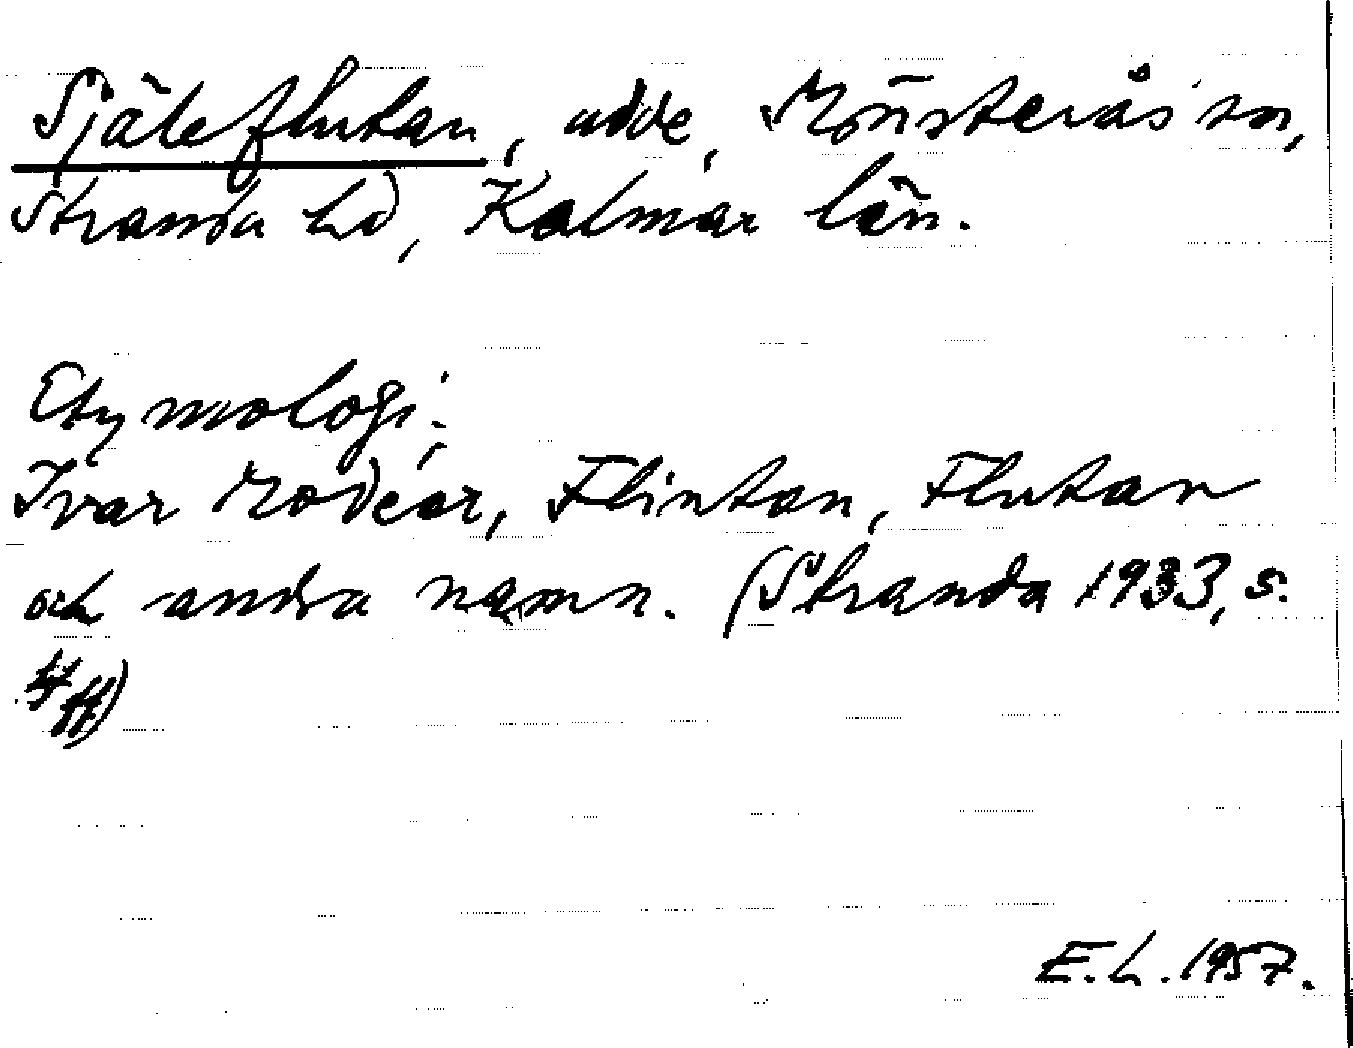 Själeflutan, udde, Mönsterås sn,
Stranda hd, Kalmar län.
Etymologi:
Ivar Modéer, Flintan, Flutan
och andra namn. (Stranda 1933, s.
4 ff)
E.L. 1957.